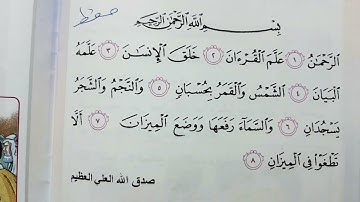 حفظ
بِسْمِ اللَّهِ الرَّحْمَٰنِ الرَّحِيمِ
الرَّحْمَٰنُ ١ عَلَّمَ الْقُرْءَانَ ٢ خَلَقَ الْإِنسَٰنَ ٣ عَلَّمَهُ
الْبَيَانَ ٤ الشَّمْسُ وَالْقَمَرُ بِحُسْبَانٍ ٥ وَالنَّجْمُ وَالشَّجَرُ
يَسْجُدَانِ ٦ وَالسَّمَآءَ رَفَعَهَا وَوَضَعَ الْمِيزَانَ ٧ أَلَّا
تَطْغَوْا فِي الْمِيزَانِ ٨
صدق الله العلي العظيم